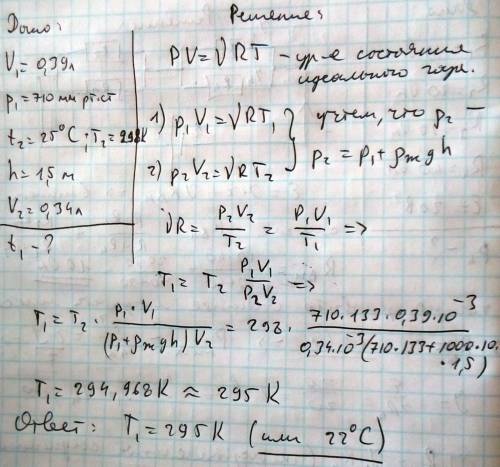 Дано:
V₁ = 0,39л
p₁ = 710 мм рт.ст
t₂ = 25°C; T₂ = 298K
h = 1,5 м
V₂ = 0,34л
t₁ - ?
Решение:
PV = νRT - ур-е состояния
идеального газа.
1) p₁V₁ = νRT₁
2) p₂V₂ = νRT₂
учтем, что p₂ —
p₂ = p₁ + ρжgh
νR = P₂V₂/T₂ = P₁V₁/T₁ =>
T₁ = T₂ P₁V₁/P₂V₂ =>
T₁ = T₂ · p₁·V₁/((p₁+ρжgh)V₂) = 298 · 710·133·0,39·10⁻³/(0,34·10⁻³(710·133+1000·10·
·1,5)
T₁ = 294,968K ≈ 295K
Ответ: T₁ = 295K (или 22°C)